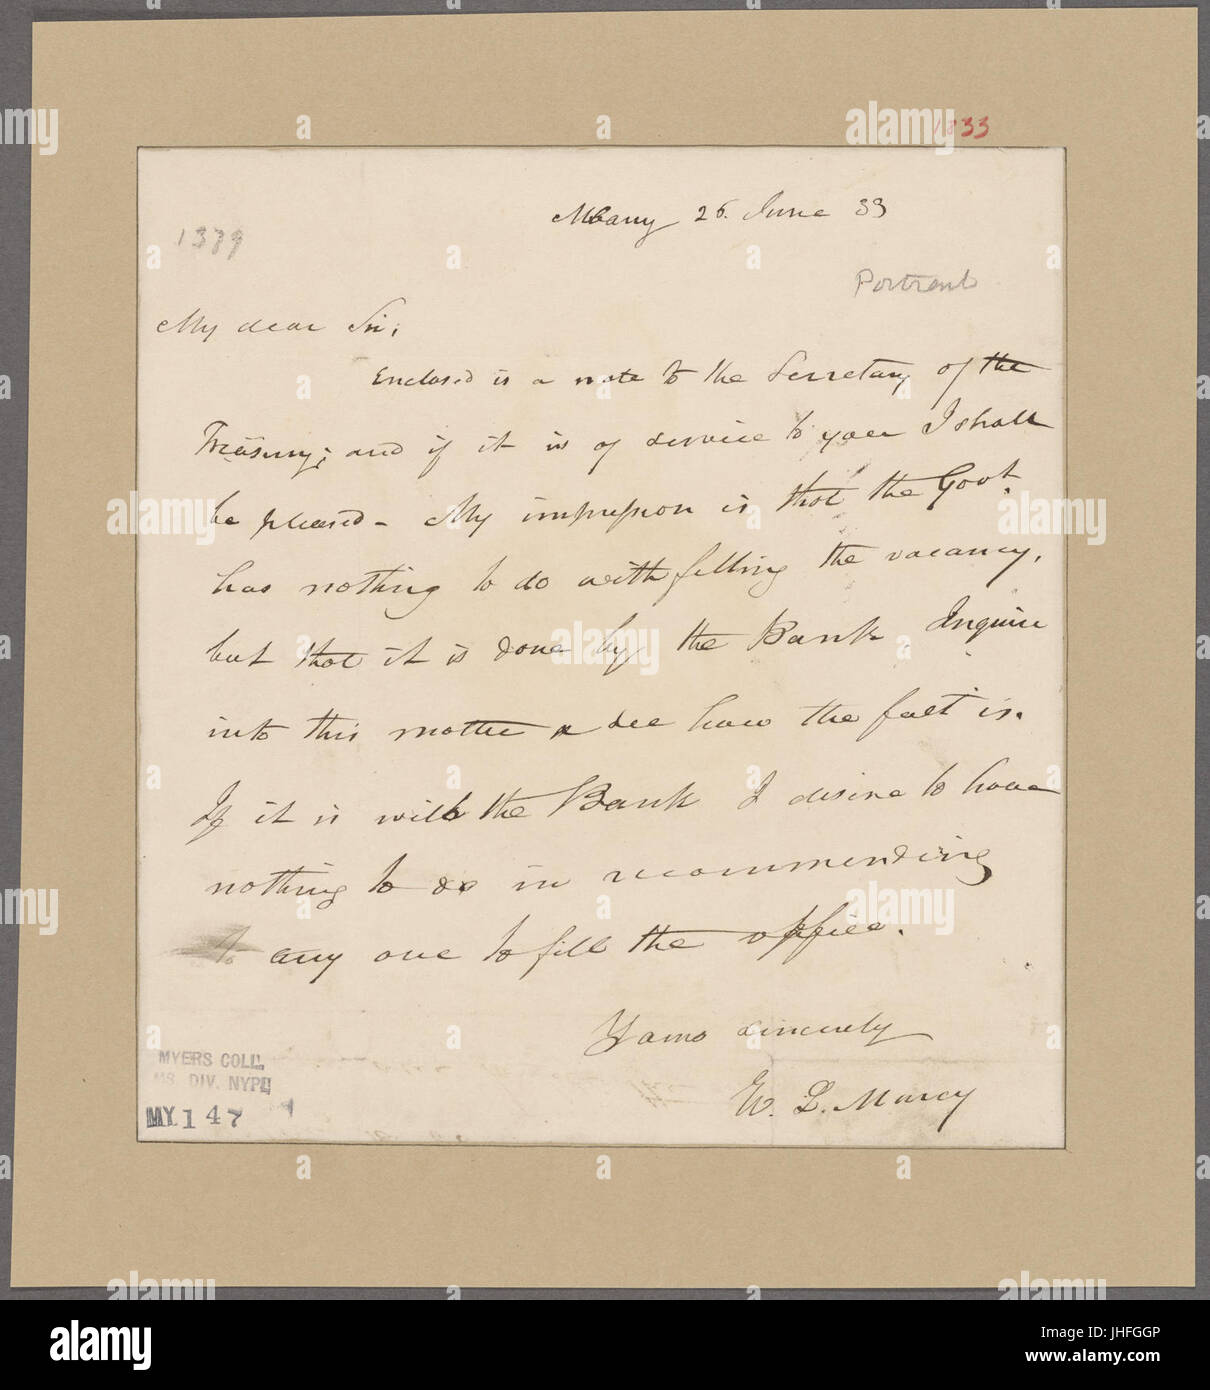 1833
Albany 26. June 33
1379
Portrait
My dear Sir,
Enclosed is a note to the Secretary of the
Treasury; and if it is of service to you I shall
be pleased - My impression is that the Govt.
has nothing to do with filling the vacancy,
but that it is done by the Bank Inquire
into this matter & see how the fact is.
If it is with the Bank I desire to have
nothing to do in recommending
to any one to fill the office.
Yours sincerely
W. L. Marcy
MYERS COLL.
MS. DIV. NYPL
MY 147
alamy
Image ID: JHFGGP
www.alamy.com